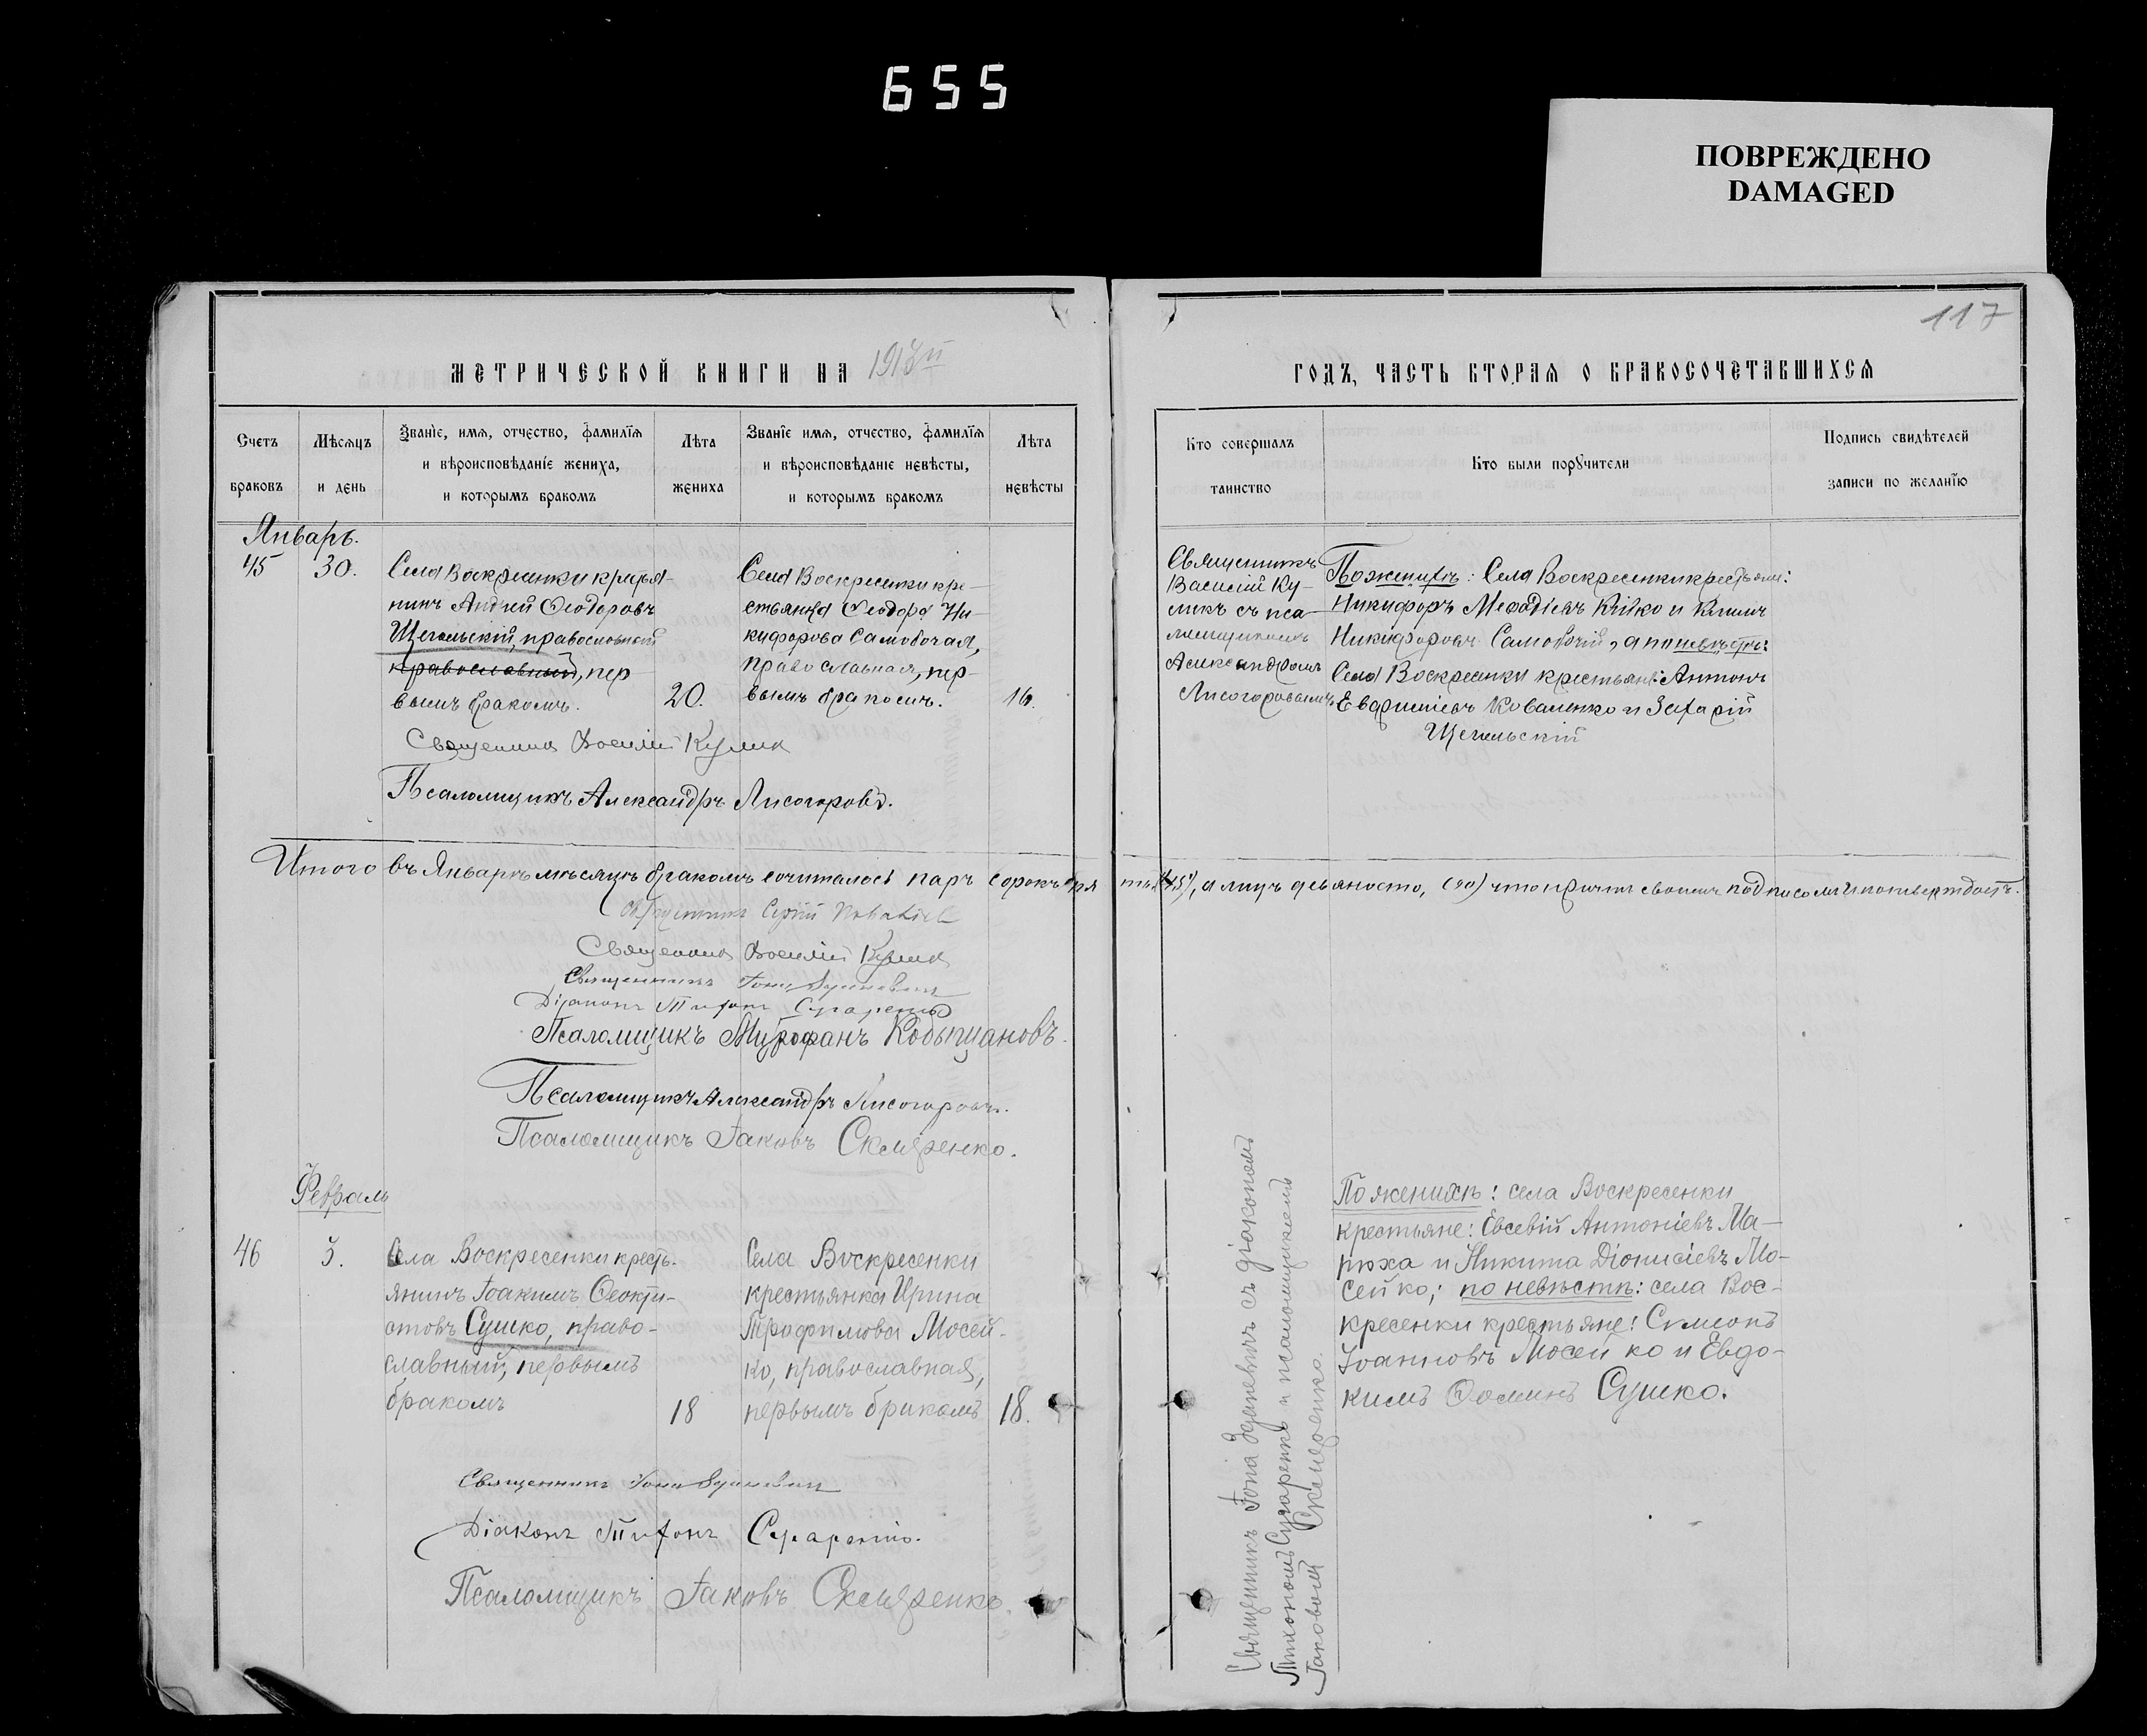 655
ПОВРЕЖДЕНО
DAMAGED
117
МЕТРИЧЕСКОЙ КНИГИ НА
ГОДЪ, ЧАСТЬ ВТОРАЯ О БРАКОСОЧЕТАВШИХСЯ
Счетъ браковъ
Мѣсяцъ и день
Званіе, имя, отчество, фамилія
и вѣроисповѣданіе жениха,
и которымъ бракомъ
Лѣта жениха
Званіе имя, отчество, фамилія
и вѣроисповѣданіе невѣсты,
и которымъ бракомъ
Лѣта невѣсты
Кто совершалъ
таинство
Кто были поручители
Подпись свидѣтелей
записи по желанію
Январь.
45
30.
Села Воскресенки крестья-
нинъ Андрей Ѳеодоровъ
Щегольскій, православный
православный, пер-
вымъ бракомъ.
20.
Села Воскресенки кре-
стьянка Ѳеодора Ни-
кифорова Самобочая,
православная, пер-
вымъ бракомъ.
16.
Священникъ
Василій Ку-
ликъ съ пса-
ломщикомъ
Александромъ
Лисогоровымъ
По женихѣ: Села Воскресенки крестьяне:
Никифоръ Меѳодіевъ и
Никифоровъ а по невѣстѣ:
Села Воскресенки крестьяне: Антонъ
Коваленко и Захарій
Щегольскій
Священникъ Василій Куликъ
Псаломщикъ Александръ Лисогоровъ.
Итого въ Январѣ мѣсяцѣ бракомъ сочиталось паръ сорокъ пять (45), а лицъ девяносто, (90) что причтъ своимъ подписомъ и потверждаетъ.
Священникъ Сергій
Священникъ Василій Куликъ
Священникъ Іона
Діаконъ Тихонъ Сухаренко
Псаломщикъ Митрофанъ Кобыщановъ.
Псаломщикъ Александръ Лисогоровъ.
Псаломщикъ Іаковъ Скляренко.
Февраль
46
3.
Села Воскресенки кресть-
янинъ Іоакимъ Ѳеокти-
стовъ Сушко, право-
славный, первымъ
бракомъ
18
Села Воскресенки
крестьянка Ирина
Трофимова Мосей-
ко, православная,
первымъ бракомъ
18.
Священникъ Іона съ діакономъ
Тихономъ Сухаренко и псаломщикомъ
Іаковомъ Скляренко.
По женихѣ: села Воскресенки
крестьяне: Евсевій Антоніевъ Ма-
рюха и Никита Діонисіевъ Мо-
сейко; по невѣстѣ: села Вос-
кресенки крестьяне: Симеонъ
Іоанновъ Мосейко и Евдо-
кимъ Ѳоминъ Сушко.
Священникъ Іона
Діаконъ Тихонъ Сухаренко.
Псаломщикъ Іаковъ Скляренко.